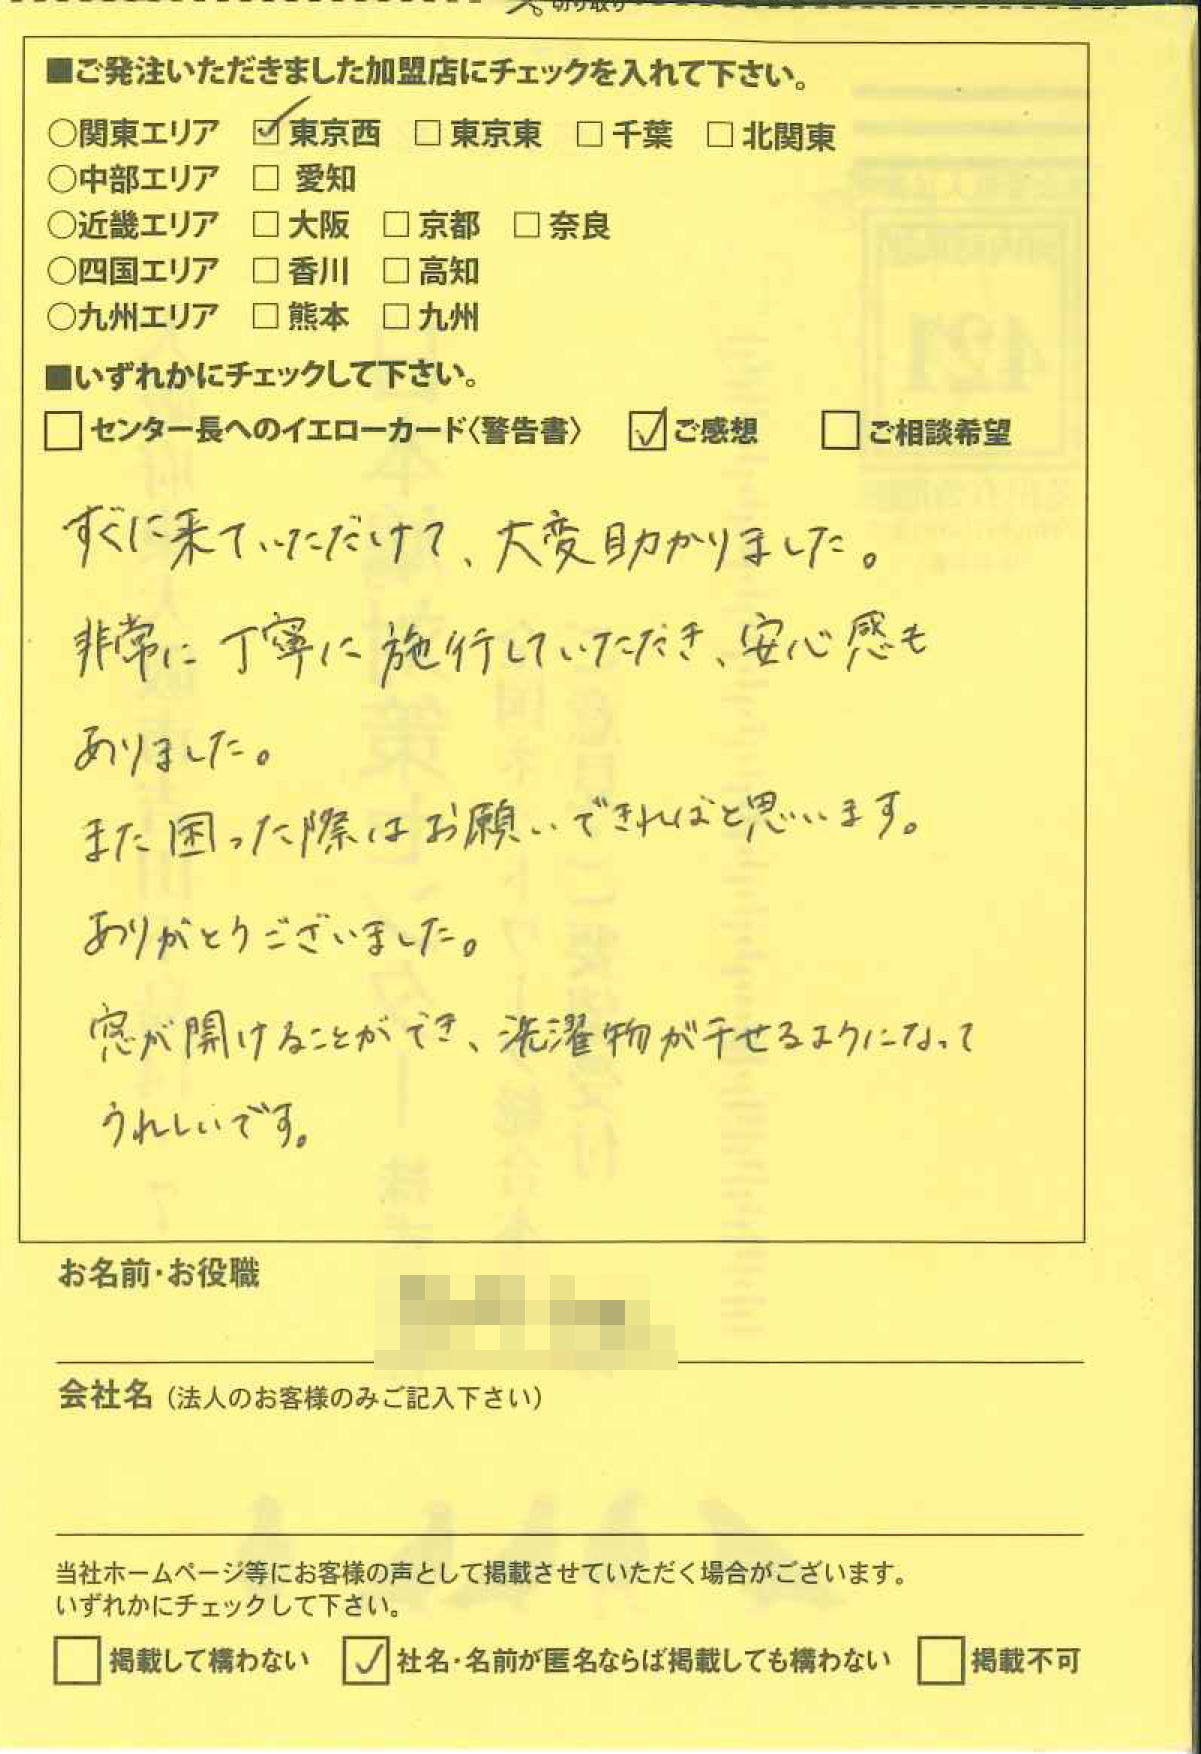 切り取り
■ご発注いただきました加盟店にチェックを入れて下さい。
○関東エリア ☑東京西 □東京東 □千葉 □北関東
○中部エリア □愛知
○近畿エリア □大阪 □京都 □奈良
○四国エリア □香川 □高知
○九州エリア □熊本 □九州
■いずれかにチェックして下さい。
□センター長へのイエローカード〈警告書〉 ☑ご感想 □ご相談希望
すぐに来ていただけて、大変助かりました。
非常に丁寧に施行していただき、安心感も
ありました。
また困った際はお願いできればと思います。
ありがとうございました。
窓が開けることができ、洗濯物が干せるようになって
うれしいです。
お名前・お役職
会社名(法人のお客様のみご記入下さい)
当社ホームページ等にお客様の声として掲載させていただく場合がございます。
いずれかにチェックして下さい。
□掲載して構わない ☑社名・名前が匿名ならば掲載しても構わない □掲載不可